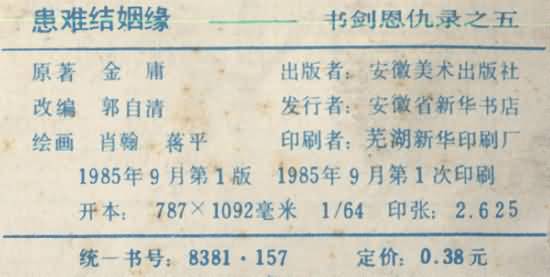 患难结姻缘 —— 书剑恩仇录之五
原著 金庸 出版者：安徽美术出版社
改编 郭自清 发行者：安徽省新华书店
绘画 肖翰 蒋平 印刷者：芜湖新华印刷厂
1985年9月第1版 1985年9月第1次印刷
开本：787×1092毫米 1/64 印张：2.625
统一书号：8381·157 定价：0.38元